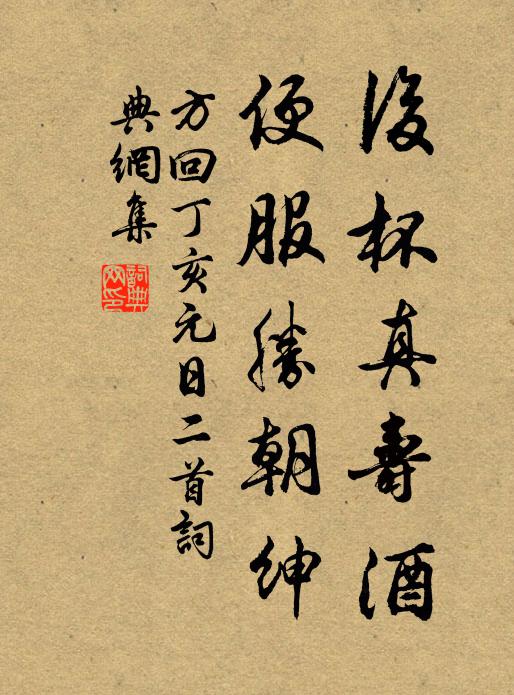 後杯真壽酒
便服勝朝紳
方回丁亥元日二首詞
典網集
詞典網印